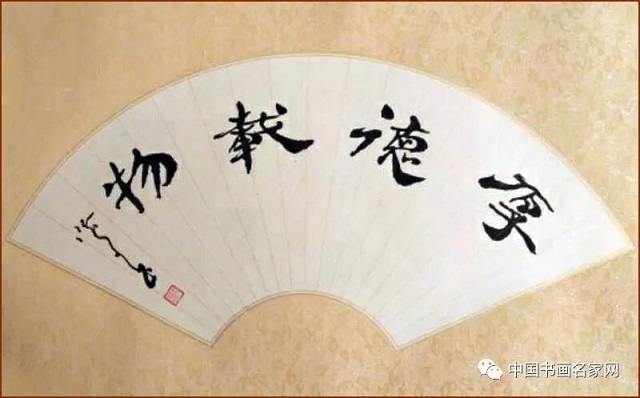 厚德载物
中国书画名家网